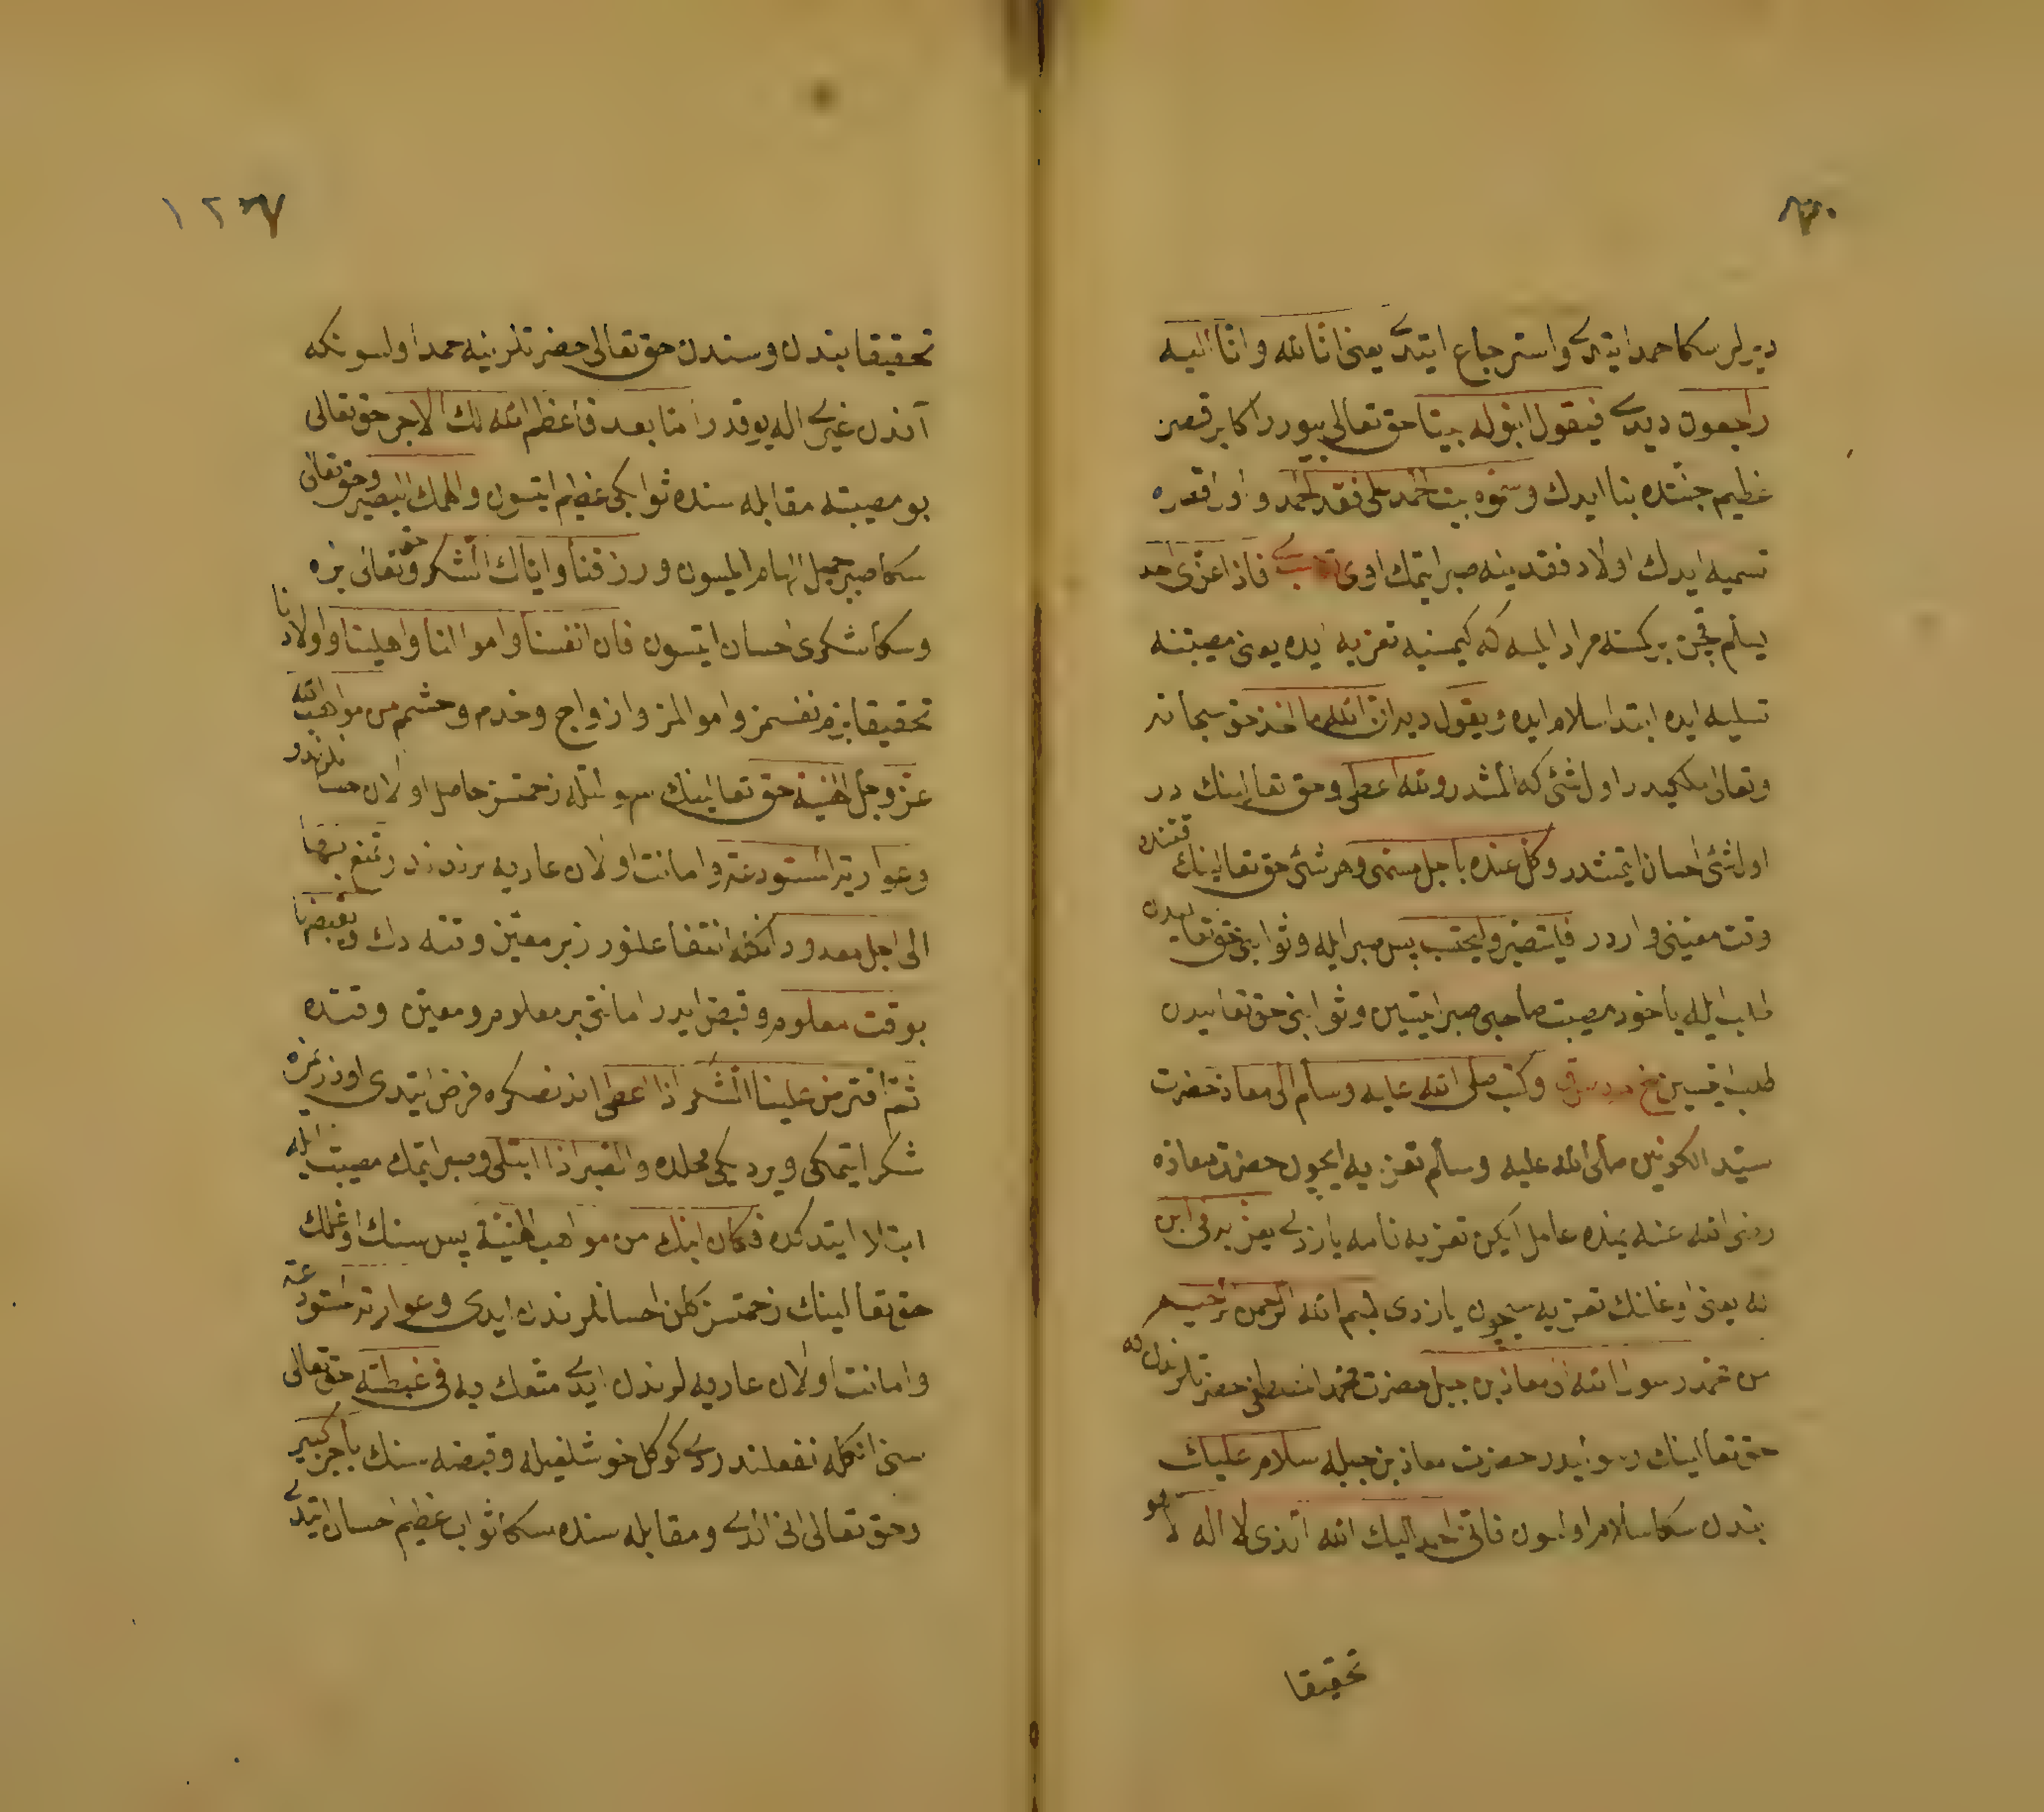 ديرلر سكا حمد ايتدى واسترجاع ايتدى يعنى انا لله وانا اليه
راجعون ديدى فيقول ابنو له بيتا حق تعالى بيورر اكا بر قصر
عظيم جنتده بنا ايدك وسموه بيت الحمد على فقد الحمد واول قصره
تسميه ايدك اولاد فقدينه صبر ايتمك اوى فاذا عزى احد
يسلم قچن بر كمسنه مراد ايلسه كه كيمسنيه تعزيه ايده يعنى مصيبتنه
تسليه ايده ابتدا سلام ايده ويقول ديران لله ما اخذ حق سبحانه
وتعالى ملكيدر اول شئ كه المشدر ولله اعطى وحق تعالينك در
اول شئ احسان ايتمشدر وكل عنده باجل مسمى وهر شئ حق تعالينك قتنده
وقت معينى واردر فلتصبر ولتحتسب پس صبر ايله وثوابنى حق تعاليدن
طلب ايله ياخود مصيبت صاحبى صبر ايتسين وثوابنى حق تعاليدن
طلب ايتسين خ م د س ق وكتب صلى الله عليه وسلم الى معاذ حضرت
سيد الكونين صلى الله عليه وسلم تعزيه ايچون حضرت معاذه
رضى الله عنه يمنده عامل ايكن تعزيه نامه يازدى يعزيه فى ابن
له يعنى اوغلنك تعزيه سيچون يازدى بسم الله الرحمن الرحيم
من محمد رسول الله الى معاذ بن جبل حضرت محمد المصطفى حضرتلرندن كه
حق تعالينك رسوليدر حضرت معاذ بن جبله سلام عليك
بندن سكا سلام اولسون فانى احمد اليك الله الذى لا اله الا هو
تحقيقا
١٢٧
تحقيقا بندن وسندن حق تعالى حضرتلرينه حمد اولسونكه
آندن غيرى اله يوقدر اما بعد فاعظم الله لك الاجر حق تعالى
بو مصيبته مقابله سنده ثوابكى عظيم ايتسون والهمك الصبر وحق تعالى
سكا صبر جميل الهام ايلسون ورزقنا واياك الشكر وحق تعالى بزه
وسكا شكرى احسان ايتسون فان انفسنا واموالنا واهلينا واولادنا
تحقيقا بزم نفسمز واموالمز وازواج وخدم وحشم من مواهب الله
عز وجل الهنيئة حق تعالينك سهولتله زحمتسز حاصل اولان
وعواريه المستودعة وامانت اولان عاريه لرندندر نمتع بها
الى اجل معدود انكله انتفاعلنورز بر معين وقته دك ويقبضها
بوقت معلوم وقبض ايدر امانتى بر معلوم ومعين وقتده
ثم افترض علينا الشكر اذا اعطى اندنصكره فرض ايتدى اوزرمزه
شكر ايتمكى ويرديكى محلده والصبر اذا ابتلى وصبر ايتمك مصيبت ايله
ابتلا ايتدكده فكان ابنك من مواهب الهنيئة پس سنك اوغلك
حق تعالينك زحمتسز كلن احسانلرندن ايدى وعواريه المستودعة
وامانت اولان عاريه لرندن ايدى متعك به فى غبطة حق تعالى
سنى انكله نفعلندردى كوكل خوشلغيله وقبضه منك باجر كبير
وحق تعالى انى الدى ومقابله سنده سكا ثواب عظيم احسان ايتدى